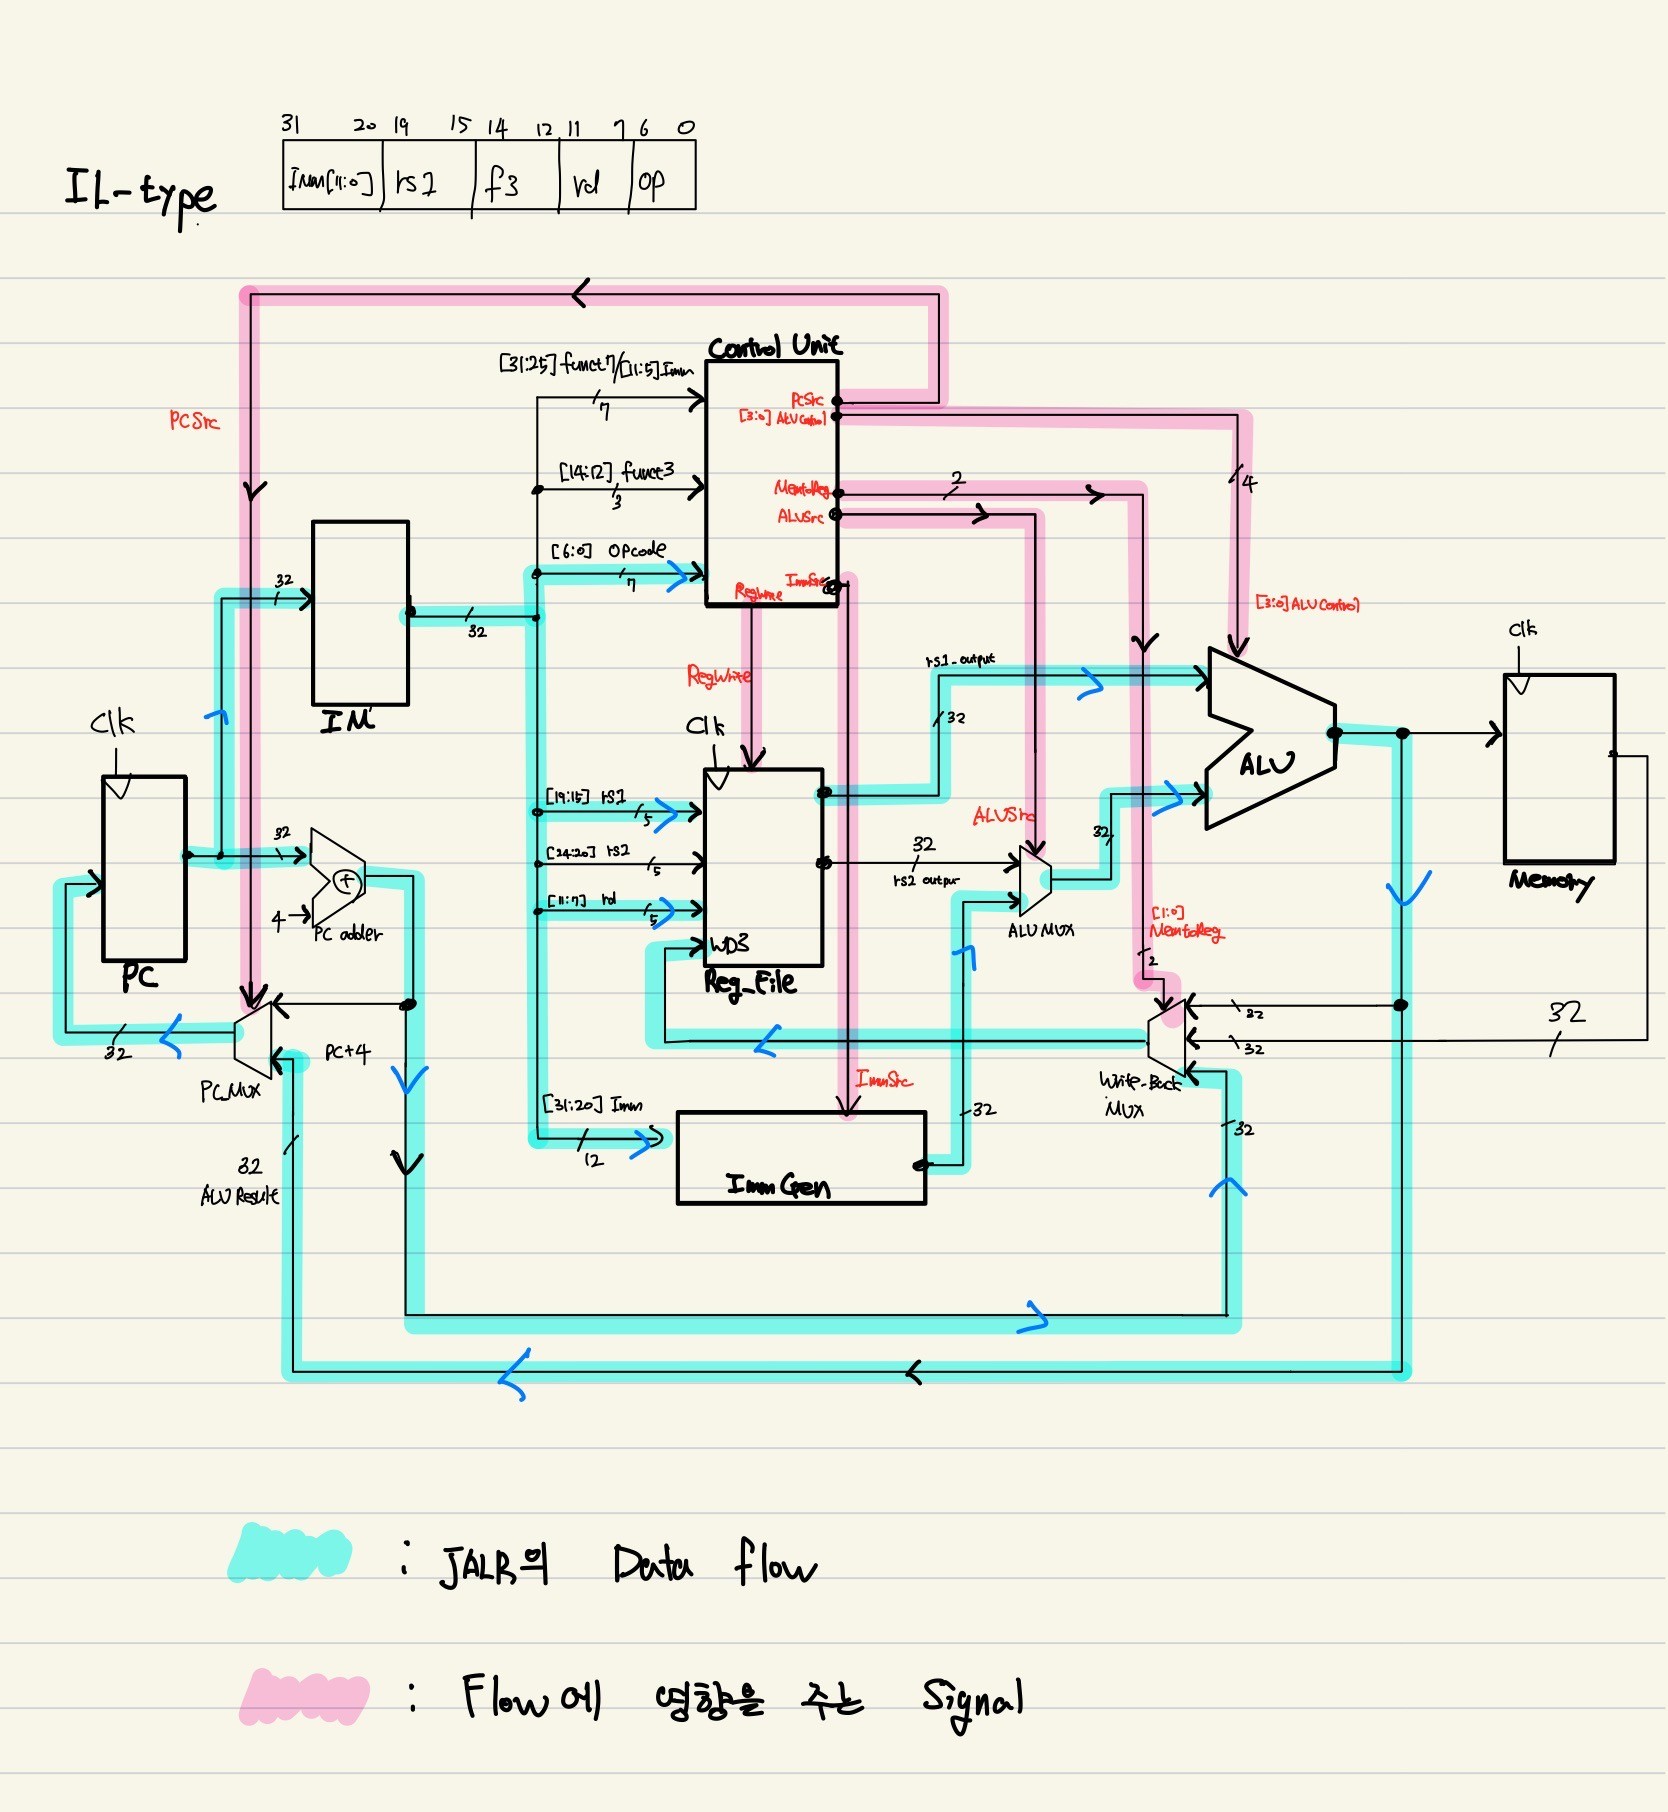 31 20 19 15 14 12 11 7 6 0
IL-type
Imm[11:0] rs1 f3 rd op
Control Unit
[31:25] funct7/[11:5] Imm
7
PCSrc
PCSrc
[3:0] ALU Control
[14:12] funct3
3
MemtoReg
2
4
ALUSrc
[6:0] opcode
7
ImmSrc
RegWrite
32
32
[3:0] ALU Control
Clk
RegWrite
rs1_output
32
IM
Clk
Clk
ALU
[19:15] rs1
5
ALUSrc
32
32
[24:20] rs2
5
32
rs2 output
4
PC adder
[11:7] rd
5
ALU MUX
[1:0]
MemtoReg
2
Memory
WD3
PC
Reg_File
32
32
32
32
PC+4
PC_MUX
ImmSrc
Write_Back
MUX
[31:20] Imm
12
32
32
32
ALU Result
Imm Gen
: JALR의 Data flow
: Flow에 영향을 주는 Signal